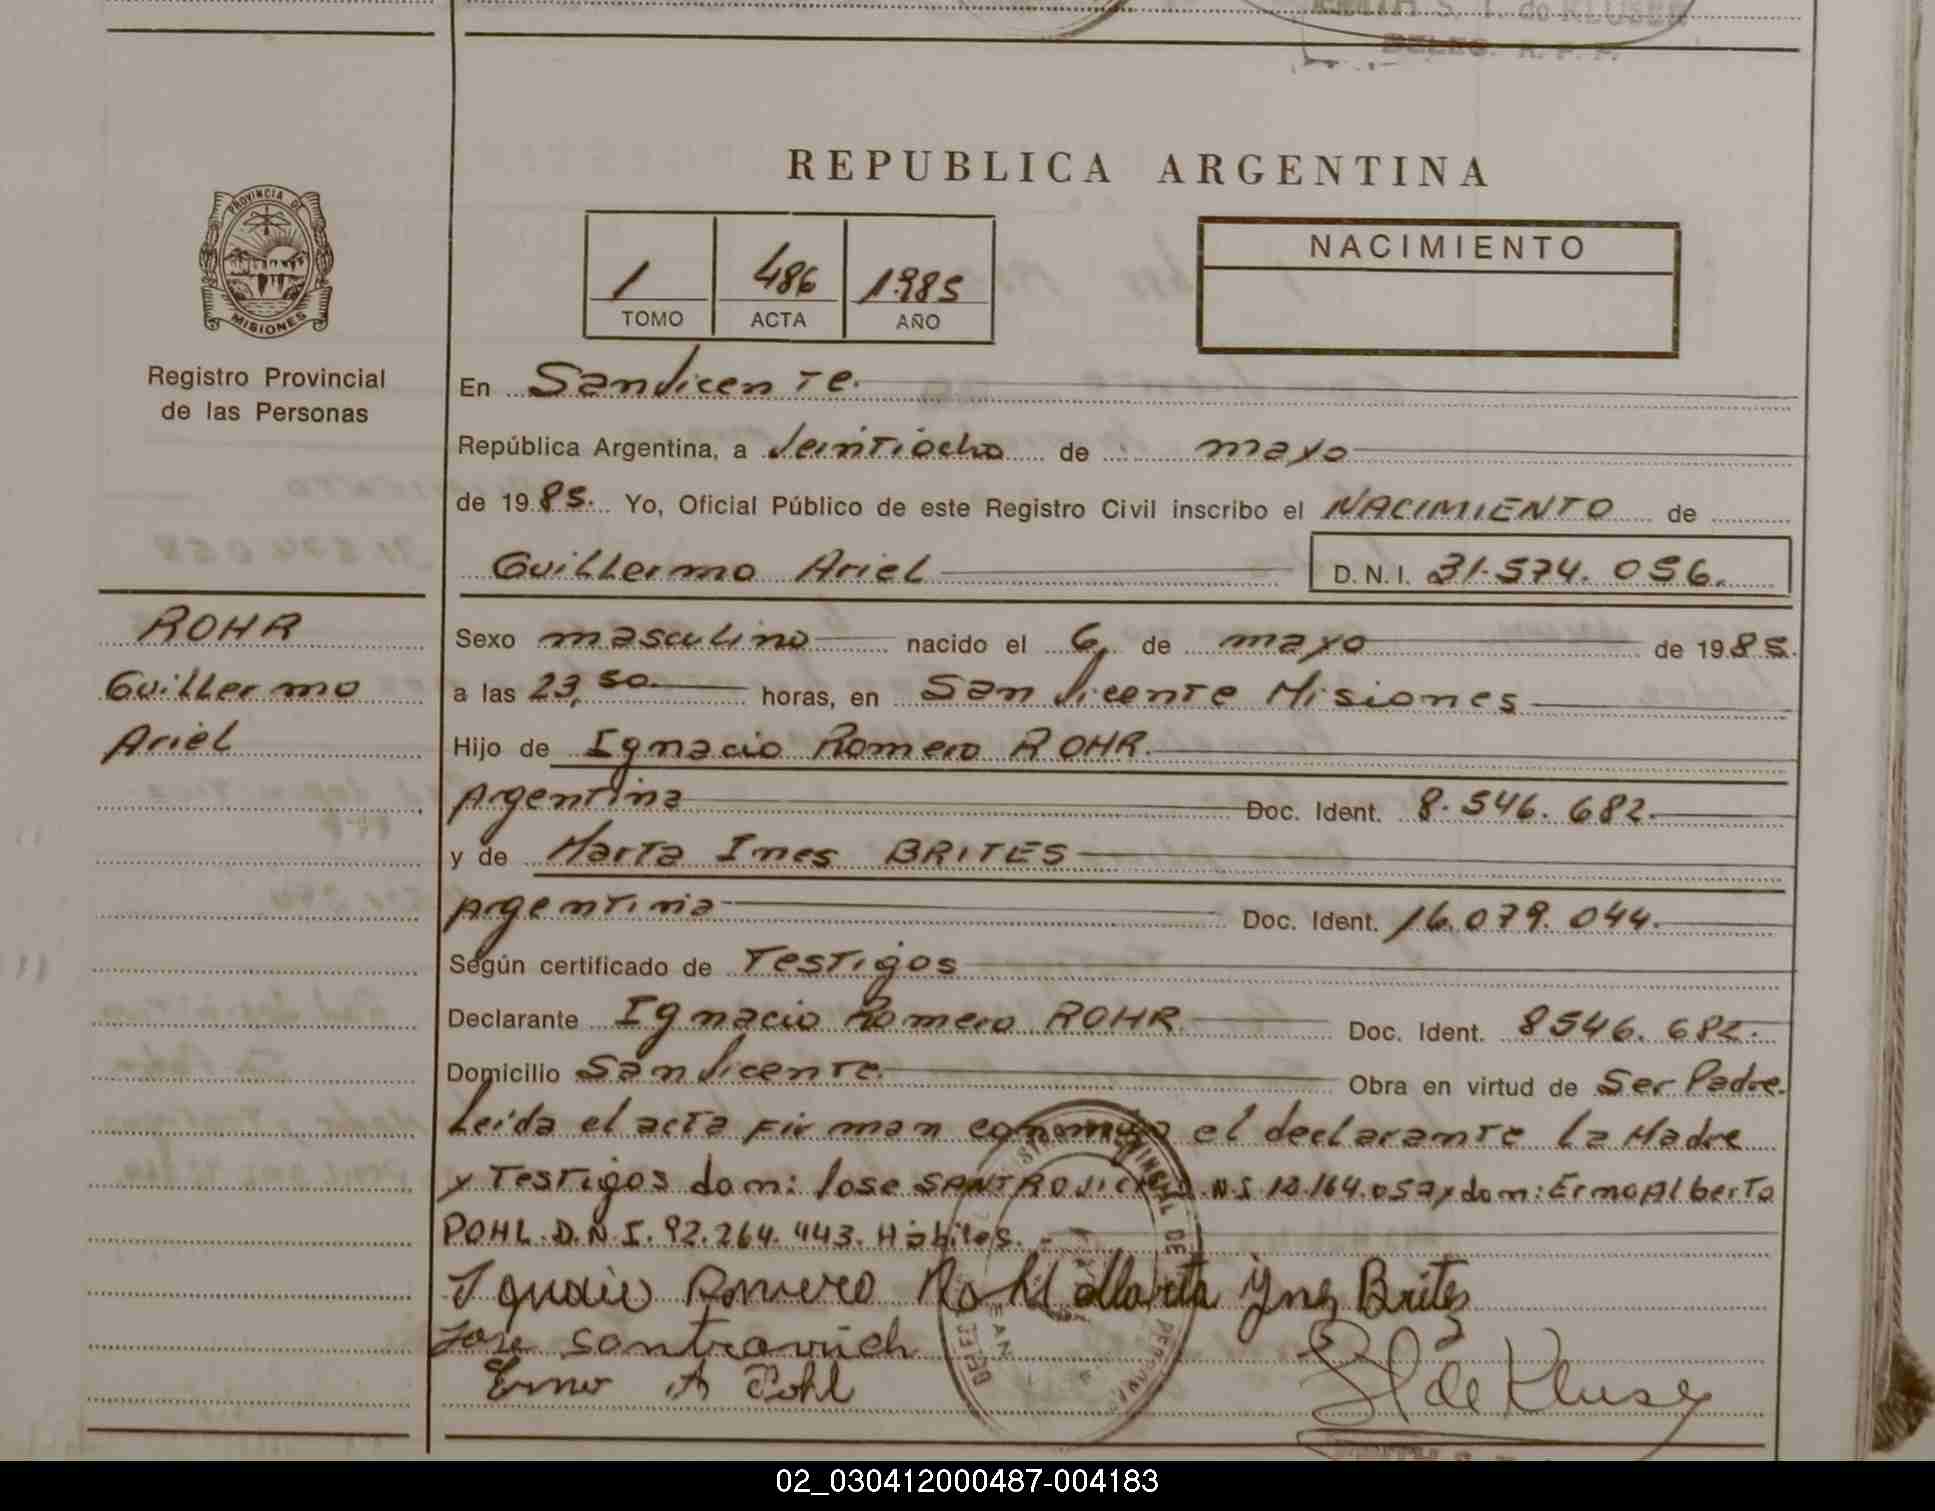 DELEG. R. P. P.
PROVINCIA DE
MISIONES
Registro Provincial
de las Personas
ROHR
Guillermo
Ariel
REPUBLICA ARGENTINA
1 486 1985
TOMO ACTA AÑO
NACIMIENTO
En San Vicente.
República Argentina, a Veintiocho de mayo
de 1985. Yo, Oficial Público de este Registro Civil inscribo el NACIMIENTO de
Guillermo Ariel D.N.I. 31.574.056.
Sexo masculino nacido el 6 de mayo de 1985.
a las 23,50 horas, en San Vicente Misiones
Hijo de Ignacio Romero ROHR.
Argentina Doc. Ident. 8.546.682.
y de Marta Ines BRITES
Argentina Doc. Ident. 16.079.044.
Según certificado de Testigos
Declarante Ignacio Romero ROHR Doc. Ident. 8546.682.
Domicilio San Vicente Obra en virtud de Ser Padre.
Leida el acta firman conmigo el declarante la Madre
y Testigos dom: Jose SANTROVICH D.N.I 10.164.052 y dom: Erno Alberto
POHL. D.N.I. 92.264.443. Habiles.
Ignacio Romero Rohr Marta Ynes Brites
Jose Santrovich
Erno A Pohl
de Kluse
02_030412000487-004183